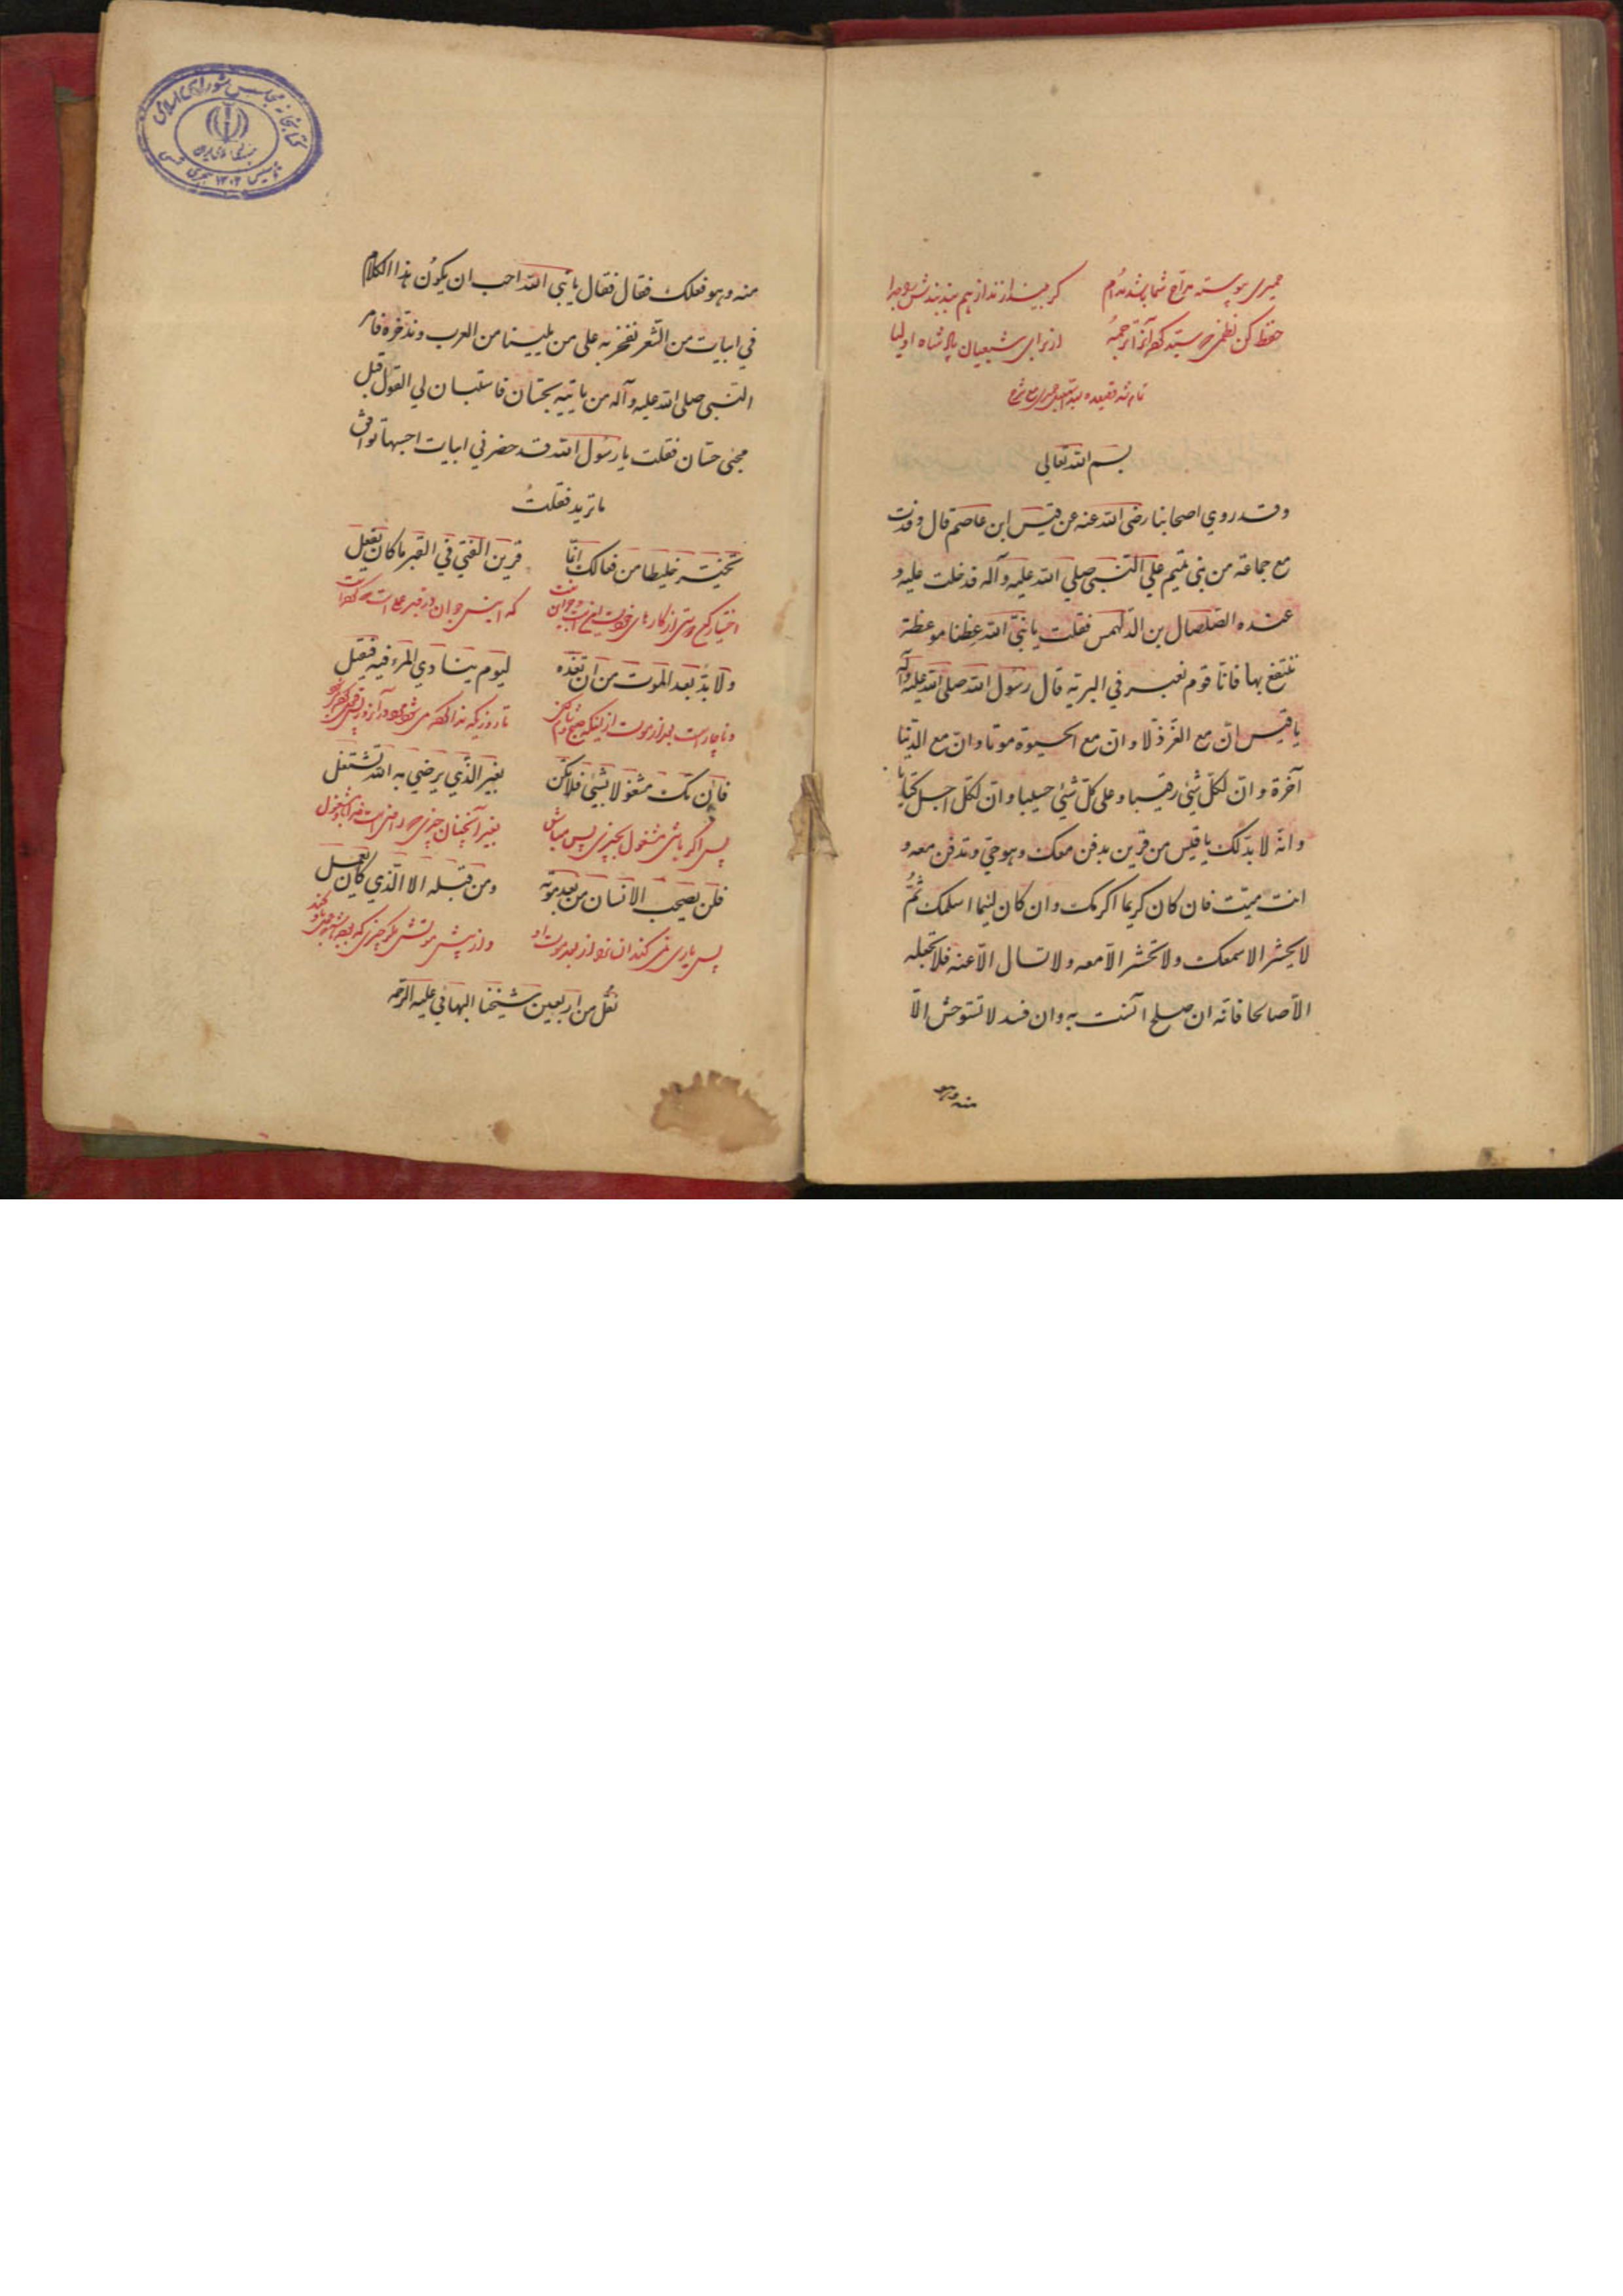 حمیری پیوسته مداح شما باشد مدام کر بیندازند از هم بند بندش را جدا
حفظ کن نظمی سید گفته آنرا ترجمه از برای شیعیان پادشاه اولیا
تمام شد قصیده سید حمیری مع شرح
بسم الله تعالی
وقد روي اصحابنا رضی الله عنه عن قیس ابن عاصم قال وفدت
مع جماعة من بني تمیم علي النبی صلي الله علیه وآله فدخلت علیه و
عنده الصلصال بن الدلهمس فقلت یا نبي الله عظنا موعظة
ننتفع بها فانا قوم نعبر في البریة قال رسول الله صلی الله علیه وآله
یا قیس ان مع العز ذلا وان مع الحیوة موتا وان مع الدنیا
آخرة وان لکل شئ رقیبا وعلی کل شئ حسیبا وان لکل اجل کتابا
وانه لا بد لك یا قیس من قرین یدفن معك وهو حي وتدفن معه و
انت میت فان کان کریما اکرمك وان کان لئیما اسلمك ثم
لا یحشر الا معك ولا تحشر الا معه ولا تسال الا عنه فلا تجعله
الا صالحا فانه ان صلح آنست به وان فسد لا تستوحش الا
منه وهو
کتابخانه مجلس شورای اسلامی
جمهوری اسلامی ایران
تاسیس ۱۳۰۲ هجری شمسی
منه وهو فعلك فقال فقال یا نبی الله احب ان یکون هذا الکلام
في ابیات من الشعر نفخر به علی من یلینا من العرب وندخره فامر
النبی صلی الله علیه وآله من یاتیه بحسان فاستبان لي القول قبل
مجئ حسان فقلت یا رسول الله قد حضرني ابیات احسبها توافق
ما ترید فقلت
تخیر خلیطا من فعالك انما قرین الفتی في القبر ما کان یفعل
اختیار کن دوستی از کارهای خود که انیس جوان در قبر
ولا بد بعد الموت من ان تعده لیوم ینادي المرء فیه فیقبل
و ناچار است بعد از موت از اینکه تا روزیکه ندا کرده می شود
فان تك مشغولا بشئ فلا تکن بغیر الذي یرضي به الله تشتغل
پس اگر باشی مشغول بچیزی پس مباش بغیر آنچنان چیزی راضی است
فلن یصحب الانسان من بعد موته ومن قبله الا الذي کان یعمل
پس یاری نمی کند انسانرا از بعد موت او و از پیش موتش مگر چیزی که
نقل من اربعین شیخنا البهائي علیه الرحمه